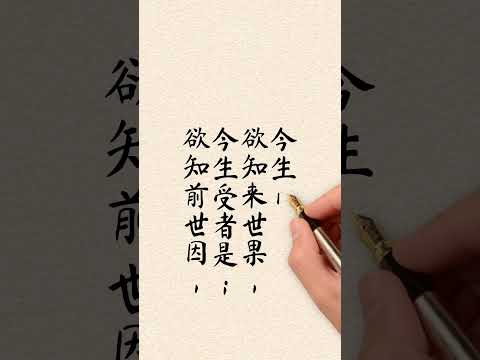 欲知前世因，
今生受者是；
欲知来世果，
今生